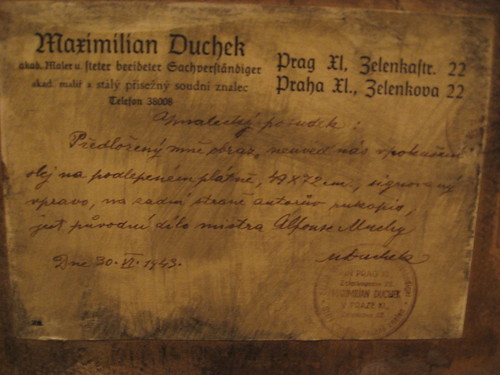 Maximilian Duchek
akad. Maler u. steter beeideter Sachverständiger
akad. malíř a stálý přísežný soudní znalec
Telefon 38008
Prag XI, Zelenkastr. 22
Praha XI., Zelenkova 22
Znalecký posudek:
Předložený mně obraz,
olej na podlepeném plátně, 49x72 cm., signovaný
vpravo, na zadní straně autorův rukopis,
jest původní dílo mistra Alfonse Muchy
Dne 30. VI. 1943.
MDuchek
MAXIMILIAN DUCHEK